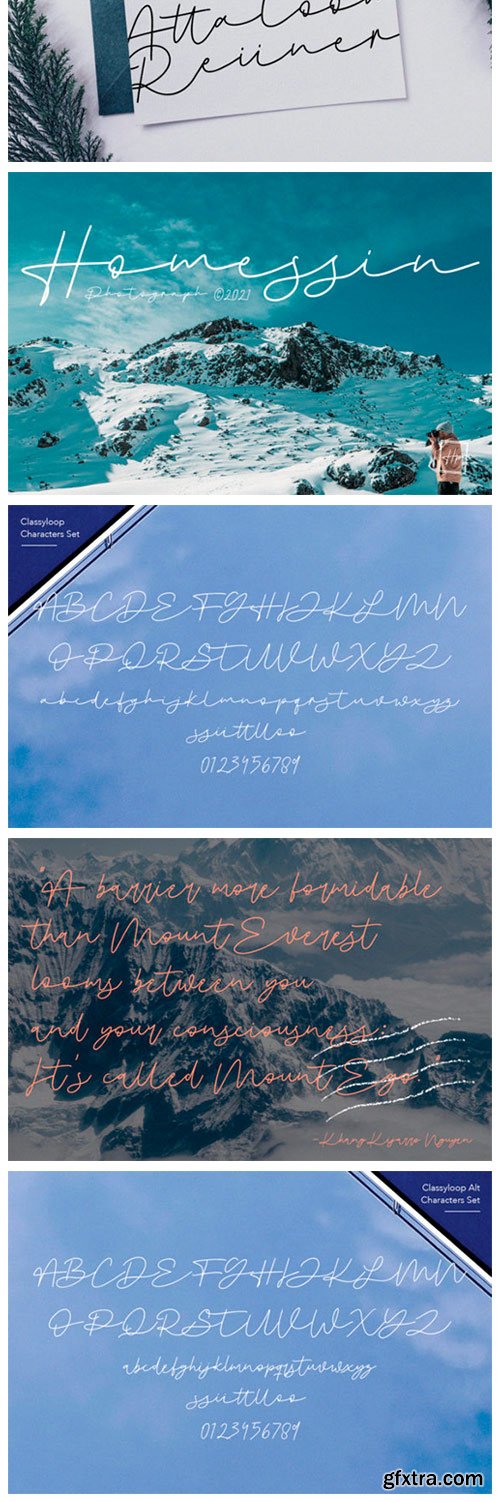 Attaloon
Reiiner
Homessin
Photograph ©2021
Classyloop
Characters Set
ABCDEFGHIJKLMN
OPQRSTUVWXYZ
abcdefghijklmnopqrstuvwxyz
ssiittlloo
0123456789
"A barrier more formidable
than Mount Everest
looms between you
and your consciousness:
It's called Mount Ego."
-Khang Kijarro Nguyen
Classyloop Alt
Characters Set
ABCDEFGHIJKLMN
OPQRSTUVWXYZ
abcdefghijklmnopqrstuvwxyz
ssiittlloo
0123456789
gfxtra.com